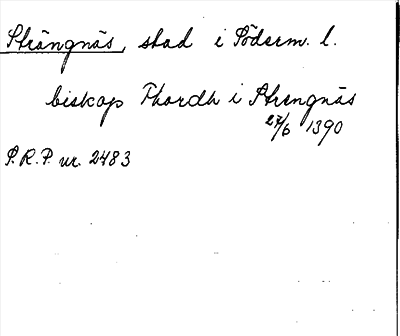 Strängnäs, stad i Söderm. l.
biskop Thordh i Strengnäs
27/6 1390
S.R.P. nr. 2483